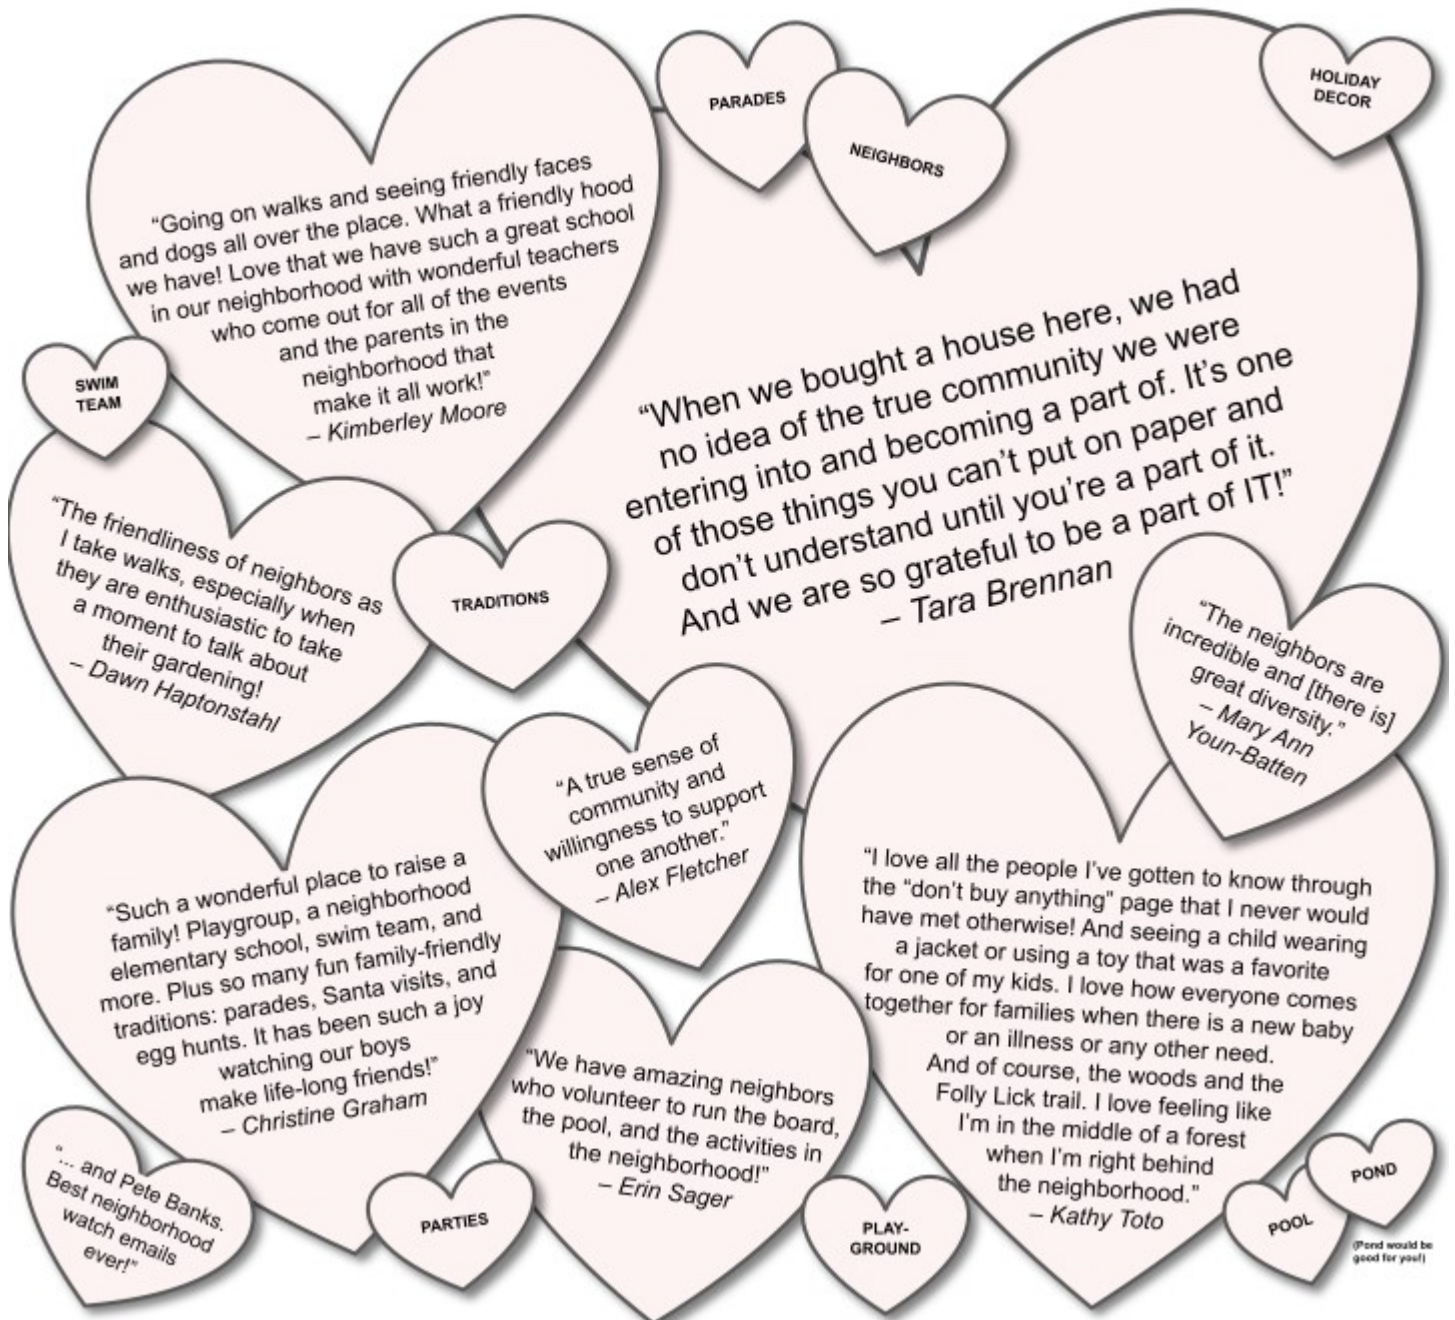 PARADES
NEIGHBORS
HOLIDAY
DECOR
“Going on walks and seeing friendly faces
and dogs all over the place. What a friendly hood
we have! Love that we have such a great school
in our neighborhood with wonderful teachers
who come out for all of the events
and the parents in the
neighborhood that
make it all work!”
– Kimberley Moore
SWIM
TEAM
“When we bought a house here, we had
no idea of the true community we were
entering into and becoming a part of. It’s one
of those things you can’t put on paper and
don’t understand until you’re a part of it.
And we are so grateful to be a part of IT!”
– Tara Brennan
“The friendliness of neighbors as
I take walks, especially when
they are enthusiastic to take
a moment to talk about
their gardening!
– Dawn Haptonstahl
TRADITIONS
“The neighbors are
incredible and [there is]
great diversity.”
– Mary Ann
Youn-Batten
“A true sense of
community and
willingness to support
one another.”
– Alex Fletcher
“Such a wonderful place to raise a
family! Playgroup, a neighborhood
elementary school, swim team, and
more. Plus so many fun family-friendly
traditions: parades, Santa visits, and
egg hunts. It has been such a joy
watching our boys
make life-long friends!”
– Christine Graham
“I love all the people I’ve gotten to know through
the “don’t buy anything” page that I never would
have met otherwise! And seeing a child wearing
a jacket or using a toy that was a favorite
for one of my kids. I love how everyone comes
together for families when there is a new baby
or an illness or any other need.
And of course, the woods and the
Folly Lick trail. I love feeling like
I’m in the middle of a forest
when I’m right behind
the neighborhood.”
– Kathy Toto
“We have amazing neighbors
who volunteer to run the board,
the pool, and the activities in
the neighborhood!”
– Erin Sager
“... and Pete Banks.
Best neighborhood
watch emails
ever!”
PARTIES
PLAY-
GROUND
POOL
POND
(Pond would be
good for you!)